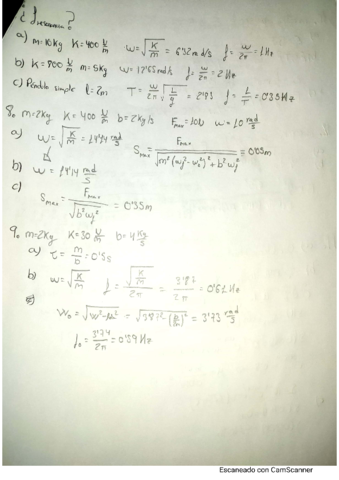 ¿ frecuencia?
a) m=10kg K=400 N/m ω=√(K/m) = 6'32 rad/s f=ω/2π=1Hz
b) K=800 N/m m=5kg ω=12'65 rad/s f=ω/2π=2Hz
c) Péndulo simple l=2m T=ω/2π √(L/g) = 2'83 f=1/T=0'35Hz
8. m=2kg K=400 N/m b=2kg/s Fmax=10N ω=10 rad/s
a) ω=√(K/m)=14'14 rad/s Smax= Fmax/√(m²(ωf²-ω0²)²+b²ωf²) = 0'05m
b) ω=14'14 rad/s
c) Smax= Fmax/√(b²ωf²) = 0'35m
9. m=2kg K=30 N/m b=4 kg/s
a) τ= m/b=0'5s
b) ω=√(K/m) f= √(K/m)/2π = 3'87/2π =0'61 Hz
c)
ω0=√(ω²-μ²) =√(3'87²-(b/2m)²) = 3'73 rad/s
f0= 3'74/2π =0'59 Hz
Escaneado con CamScanner